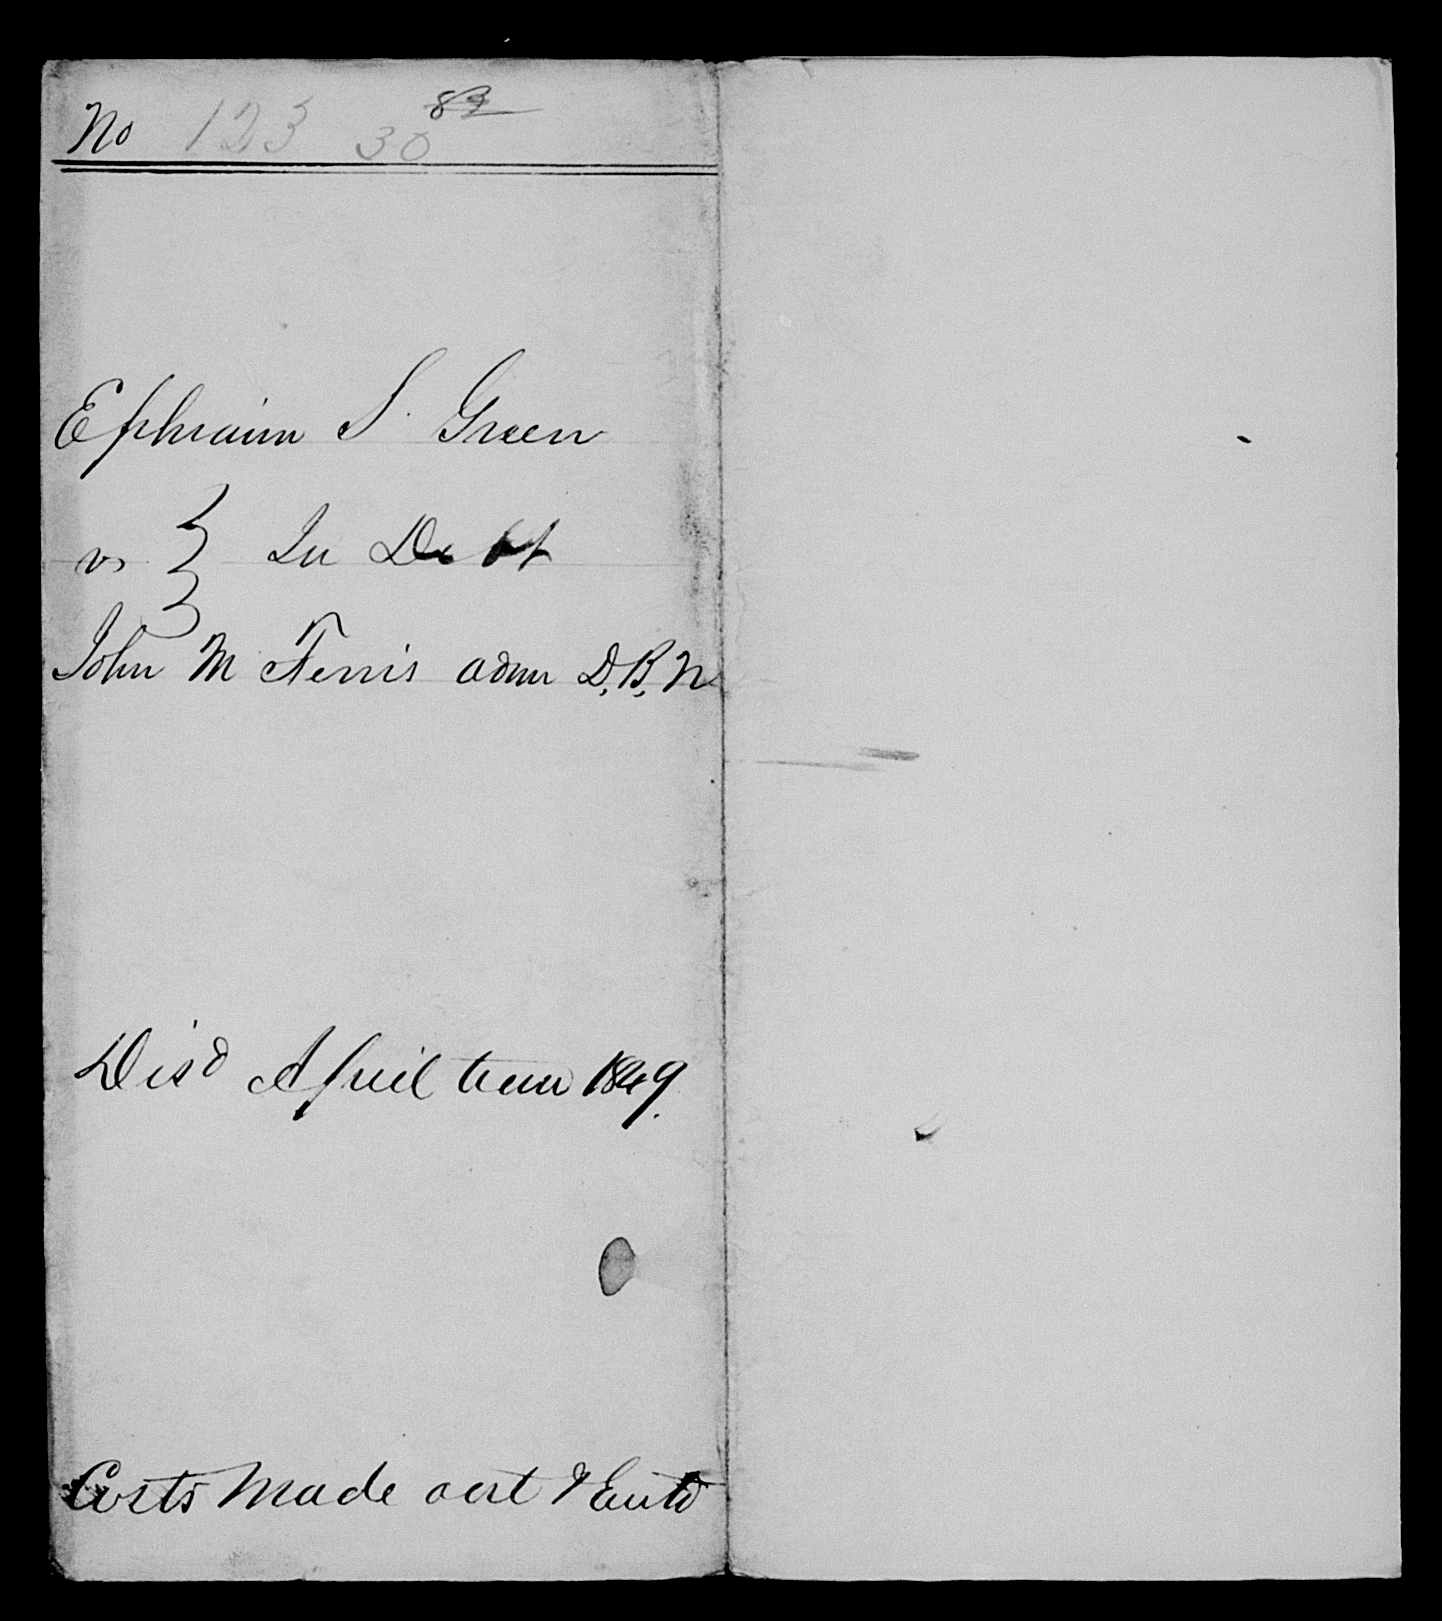 No 123 30
Ephraim S. Green
vs } In Debt
John M Ferris adm D.B.N
Disd April term 1849.
Costs Made out & Entd